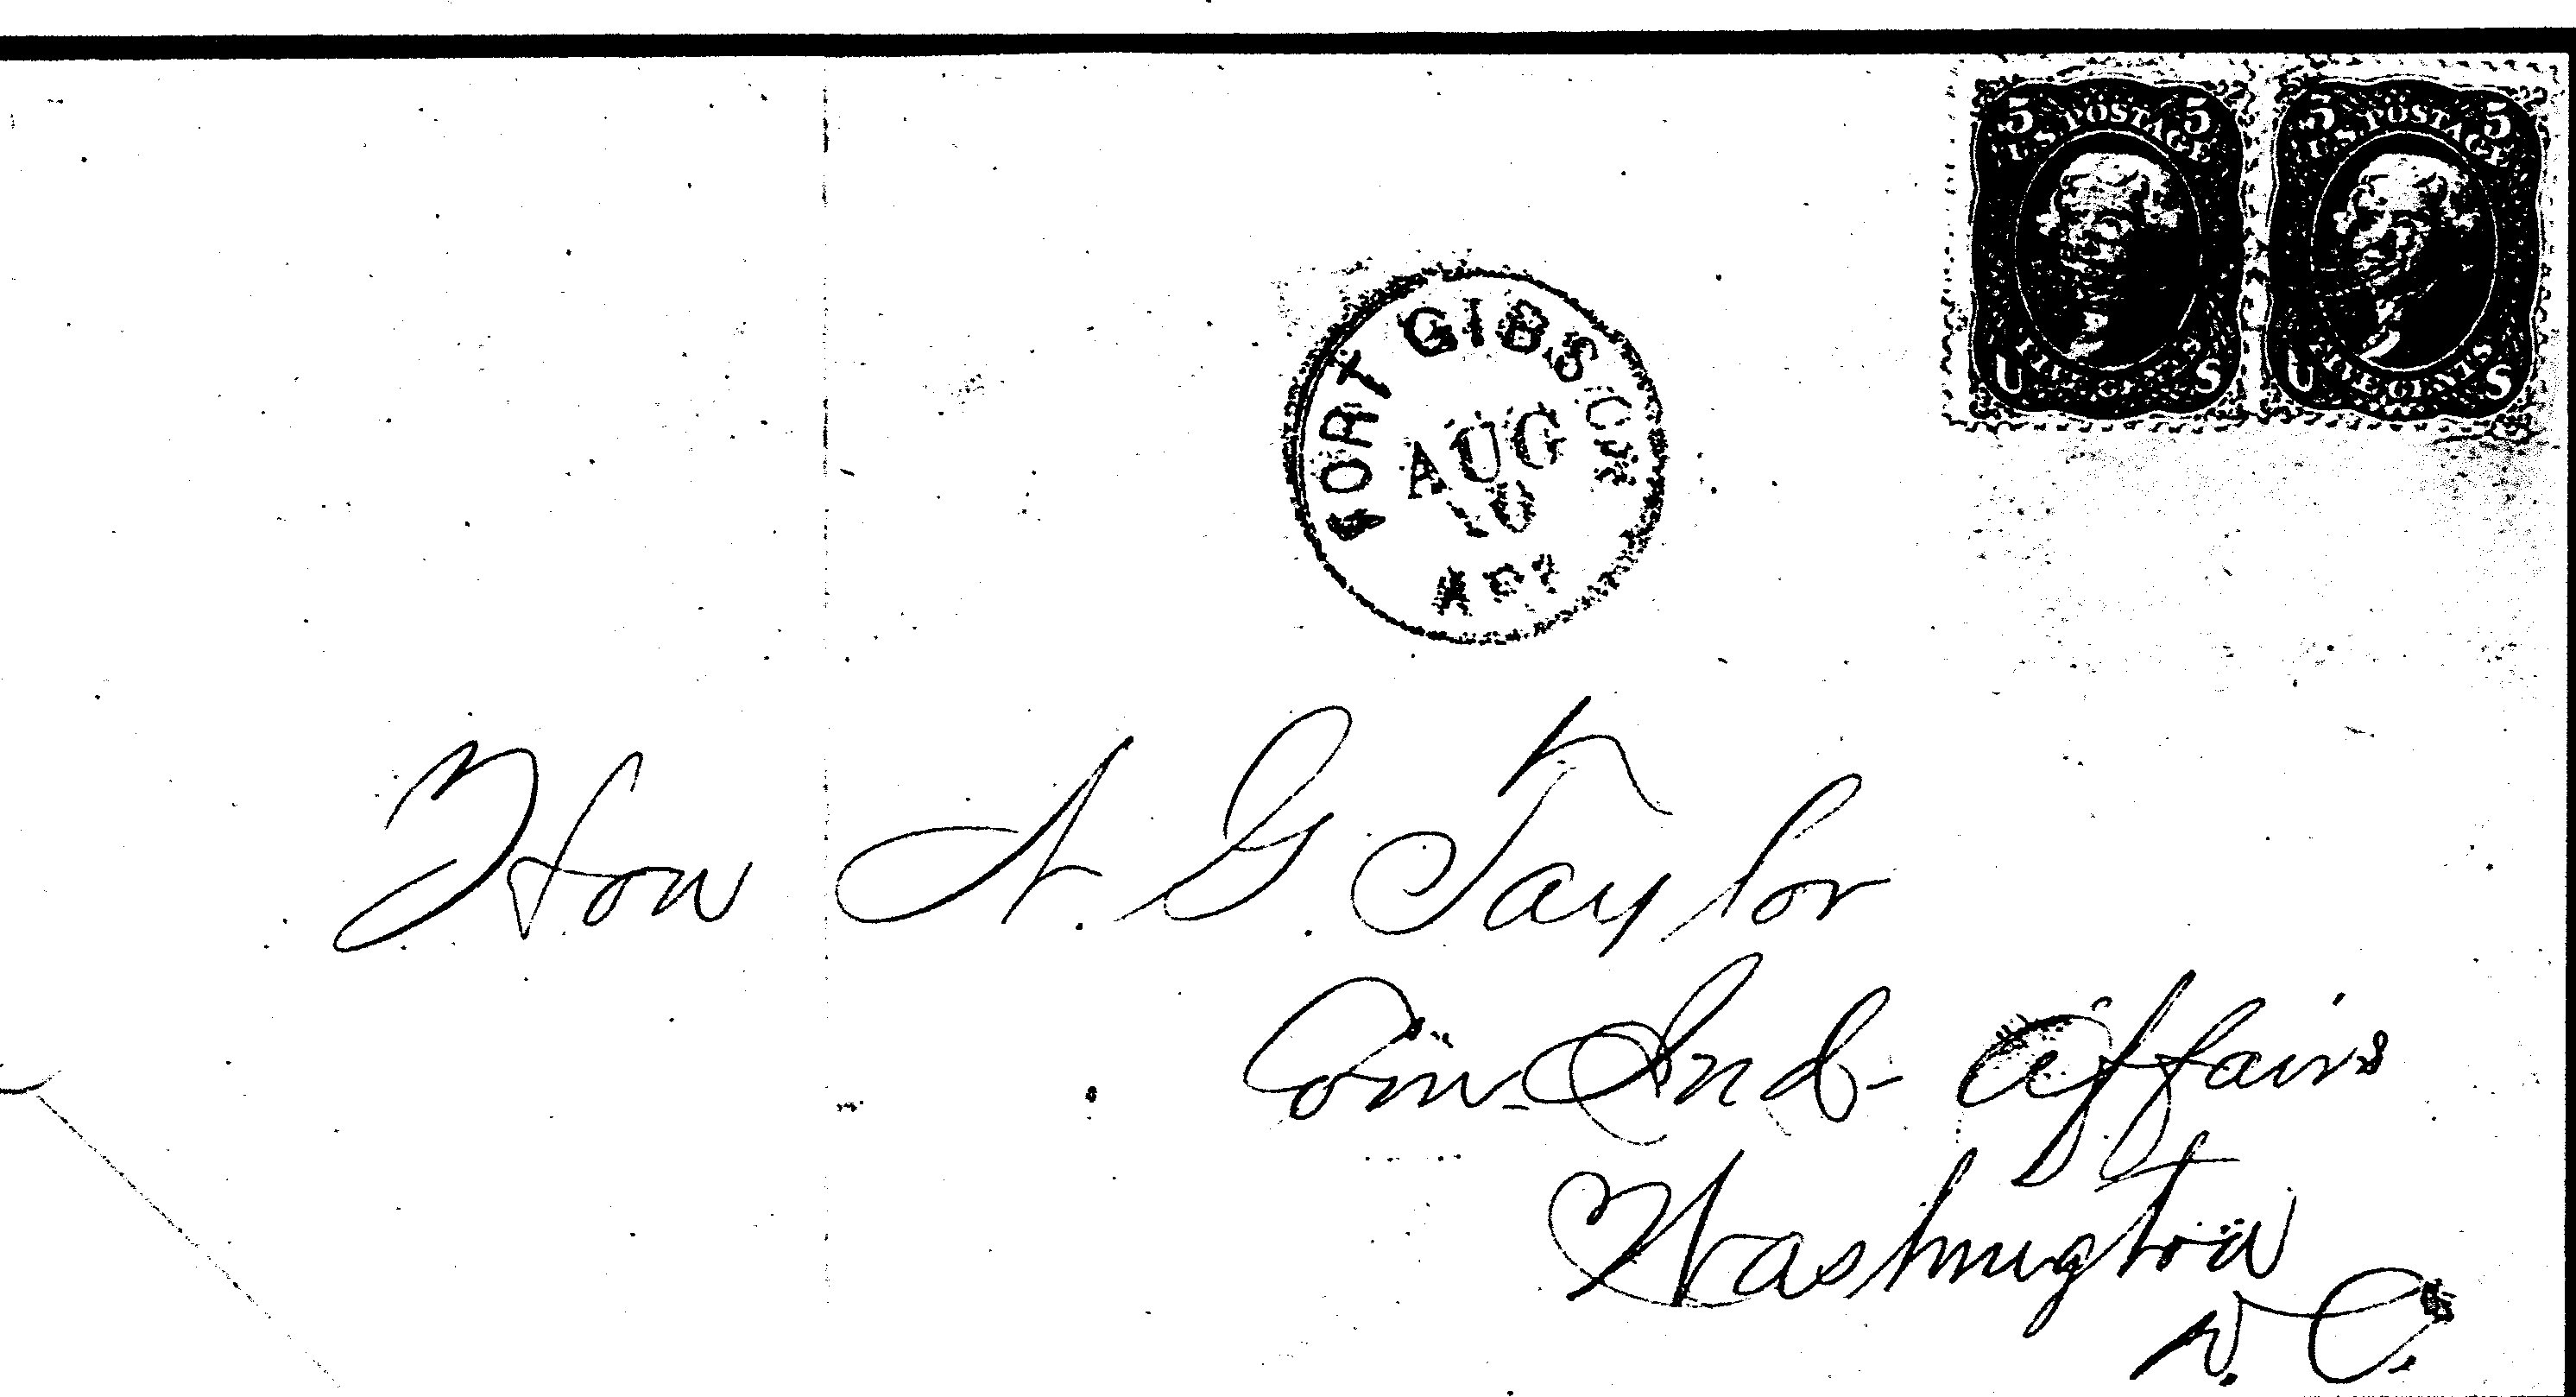 5 U.S. POSTAGE 5
U FIVE CENTS S
5 U.S. POSTAGE 5
U FIVE CENTS S
FORT GIBSON
AUG
Hon N. G. Taylor
Com. Ind. Affairs
Washington
D. C.